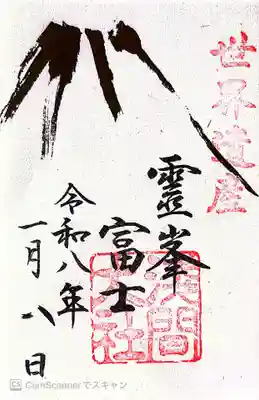 世界遺産
靈峯
富士
浅間
本社
令和八年
一月八日
CS CamScanner でスキャン